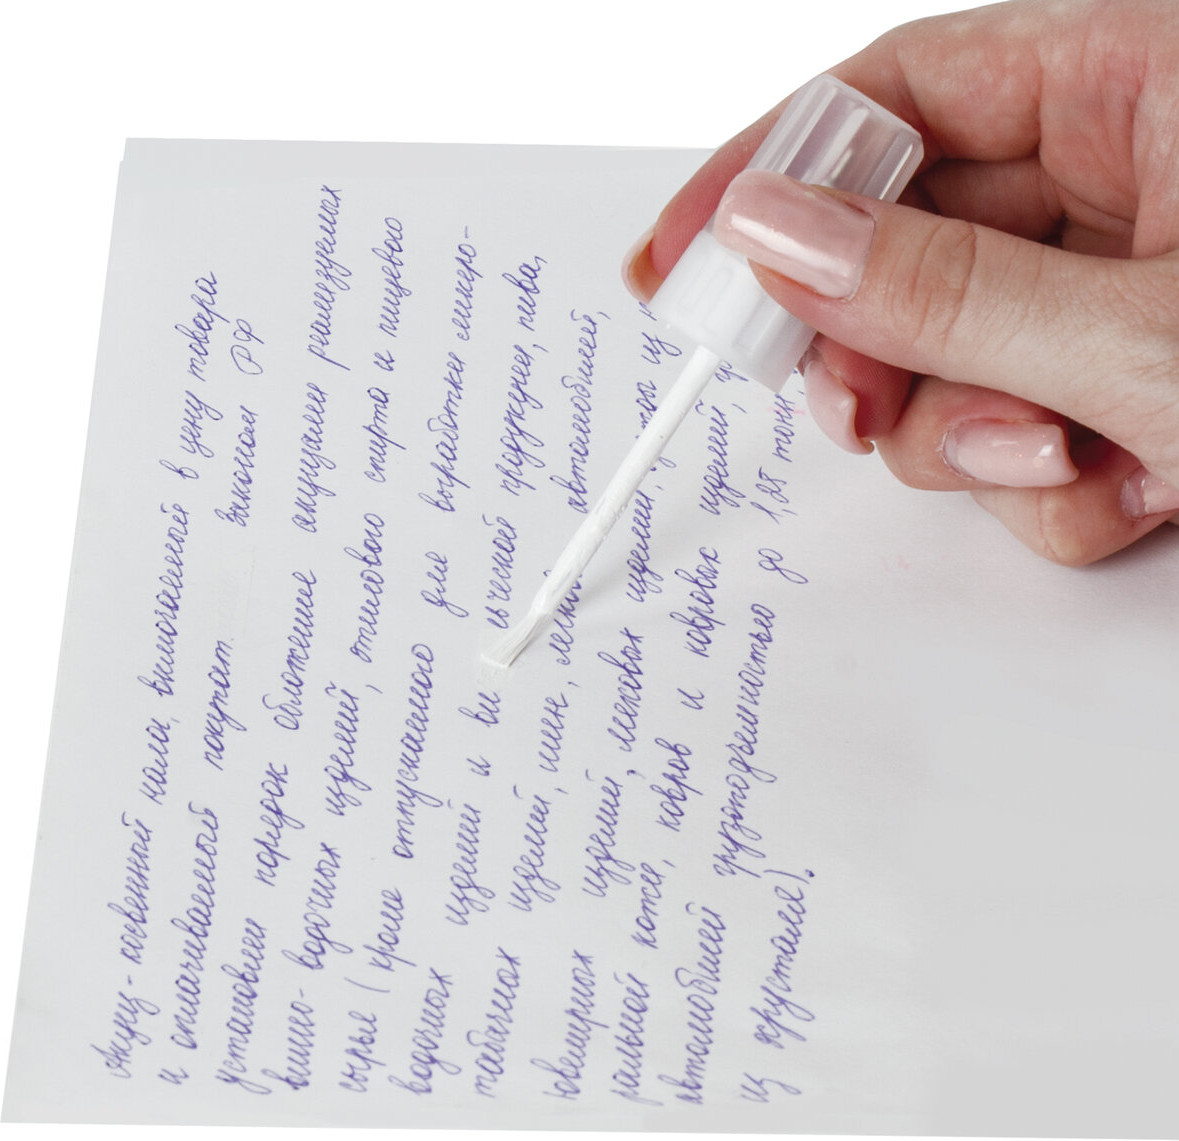 Акциз - косвенный нала, вкмючаемый в цену товара
и оплачиваемый покупат. Законом РФ
установлен порядок обложение акцизами реализуемых
винно - водочных изделий, этилового спирта и пищевого
сырья (кроме отпускаемого для выработке ликеро-
водочных изделий и ви льческой продукции, пива,
табачных изделий, шин, легков автомобилей,
ювелирных изделий, меховых изделий, ты из
ральной кожи, ковров и ковровых изделий,
автомобилей грузоподъемностью до 1,25 тонн,
из хрусталя).